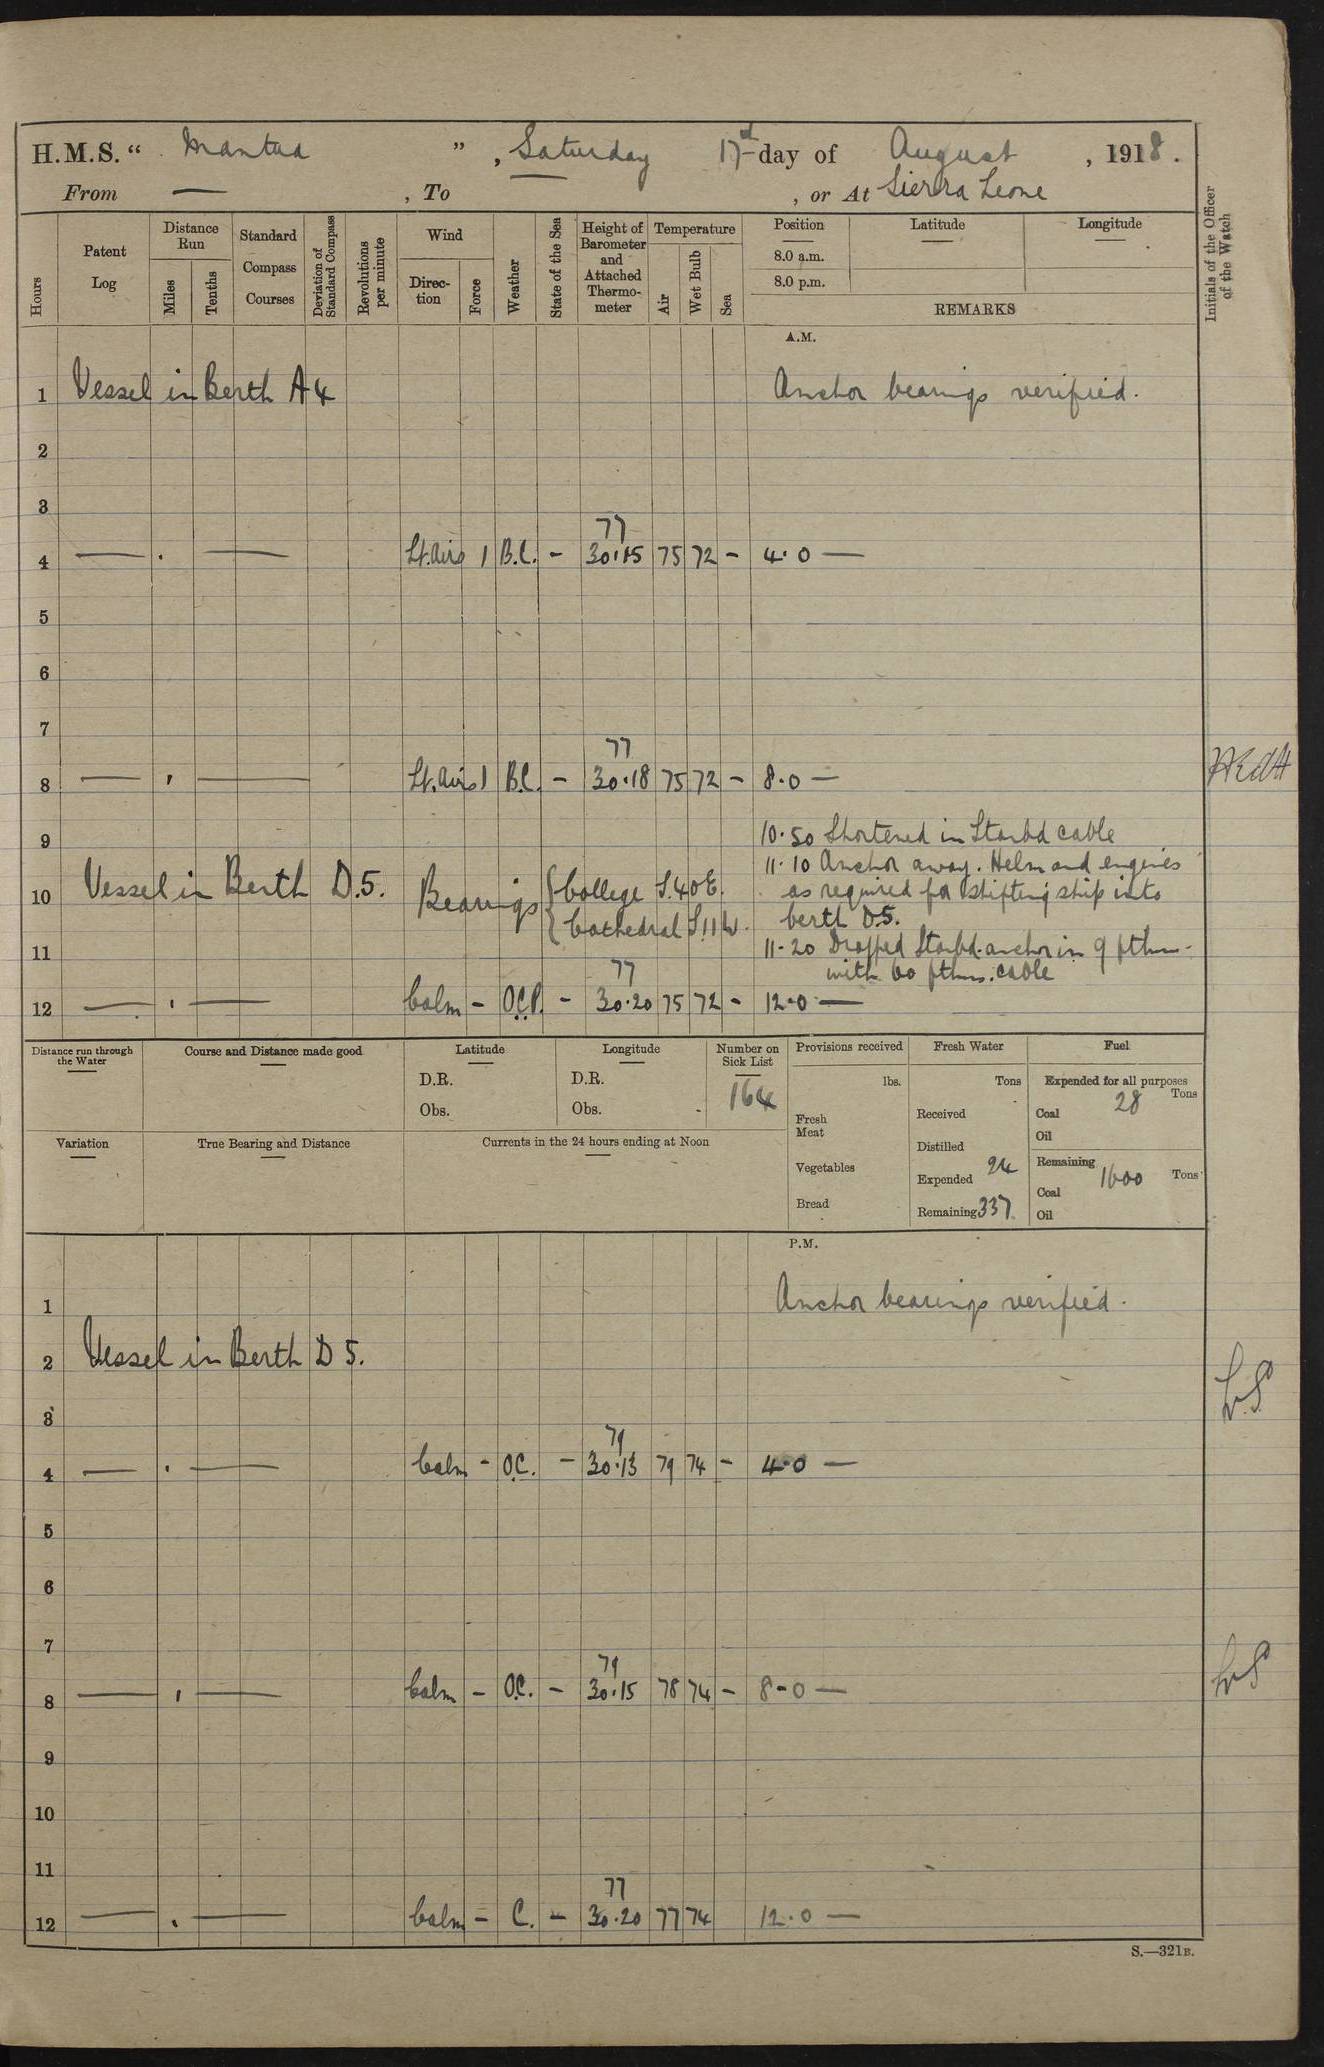 H.M.S. “ Mantua ” , Saturday 17 day of August , 1918 .
From — , To , or At Sierra Leone
Hours
Patent Log
Distance Run
Miles
Tenths
Standard Compass Courses
Deviation of Standard Compass
Revolutions per minute
Wind
Direc-tion
Force
Weather
State of the Sea
Height of Barometer and Attached Thermo-meter
Temperature
Air
Wet Bulb
Sea
Position
8.0 a.m.
8.0 p.m.
Latitude
Longitude
REMARKS
Initials of the Officer of the Watch
A.M.
1 Vessel in Berth A4 Anchor bearings verified.
2
3
77
4 — . — Lt. Airs 1 B.C. - 30.15 75 72 - 4.0 —
5
6
7
77
8 — . — Lt. Airs 1 B.C. - 30.18 75 72 - 8.0 —
9 10.50 Shortened in Starbd cable
11.10 Anchor away. Helm and engines
10 Vessel in Berth D.5. Bearings { College S.40E. as required for shifting ship into
{ Cathedral S11W. berth D.5.
11 11-20 Dropped Starbd. anchor in 9 fthm-
77 with 60 fthms. cable
12 — . — Calm - O.C.P. - 30.20 75 72 - 12.0 —
Distance run through the Water
Course and Distance made good
Latitude
D.R.
Obs.
Longitude
D.R.
Obs.
Number on Sick List
164
Provisions received
lbs.
Fresh Meat
Vegetables
Bread
Fresh Water
Tons
Received
Distilled
Expended 24
Remaining 337
Fuel
Expended for all purposes
Coal 28 Tons
Oil
Remaining
Coal 1600 Tons
Oil
Variation
True Bearing and Distance
Currents in the 24 hours ending at Noon
P.M.
1 Anchor bearings verified.
2 Vessel in Berth D 5.
3
79
4 — . — Calm - O.C. - 30.13 79 74 - 4.0 —
5
6
7
79
8 — . — Calm - O.C. - 30.15 78 74 - 8-0 —
9
10
11
77
12 — . — Calm - C. - 30.20 77 74 12.0 —
S.—321B.